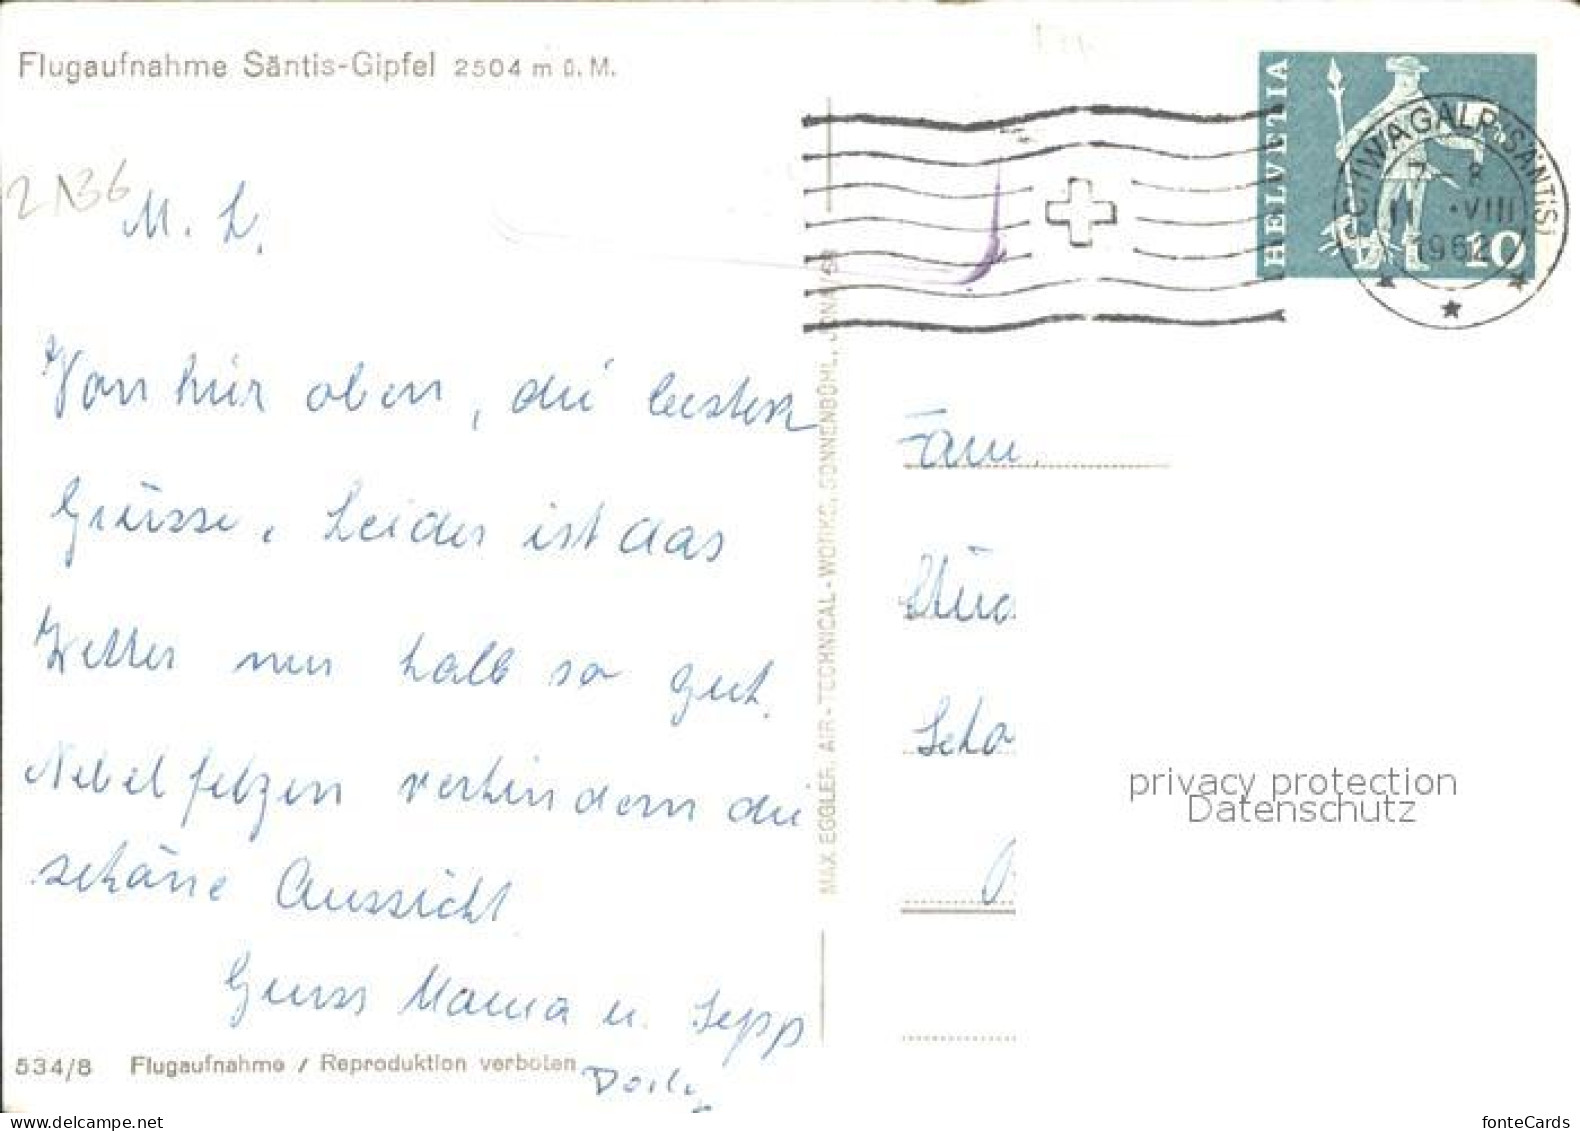 Flugaufnahme Säntis-Gipfel 2504 m ü. M.
HELVETIA
10
SCHWÄGALP (SÄNTIS)
7-8
VIII
1962
M. L.
Von hier oben, die besten
Grüsse. Leider ist das
Wetter nur halb so gut.
Nebelfetzen verhindern die
schöne Aussicht.
Gruss Mama u. Sepp
Fam.
MAX EGGLER, AIR-TECHNICAL-WORKS, SONNENBÜHL, JONA/SG
privacy protection
Datenschutz
534/8 Flugaufnahme / Reproduktion verboten
www.delcampe.net
fonteCards